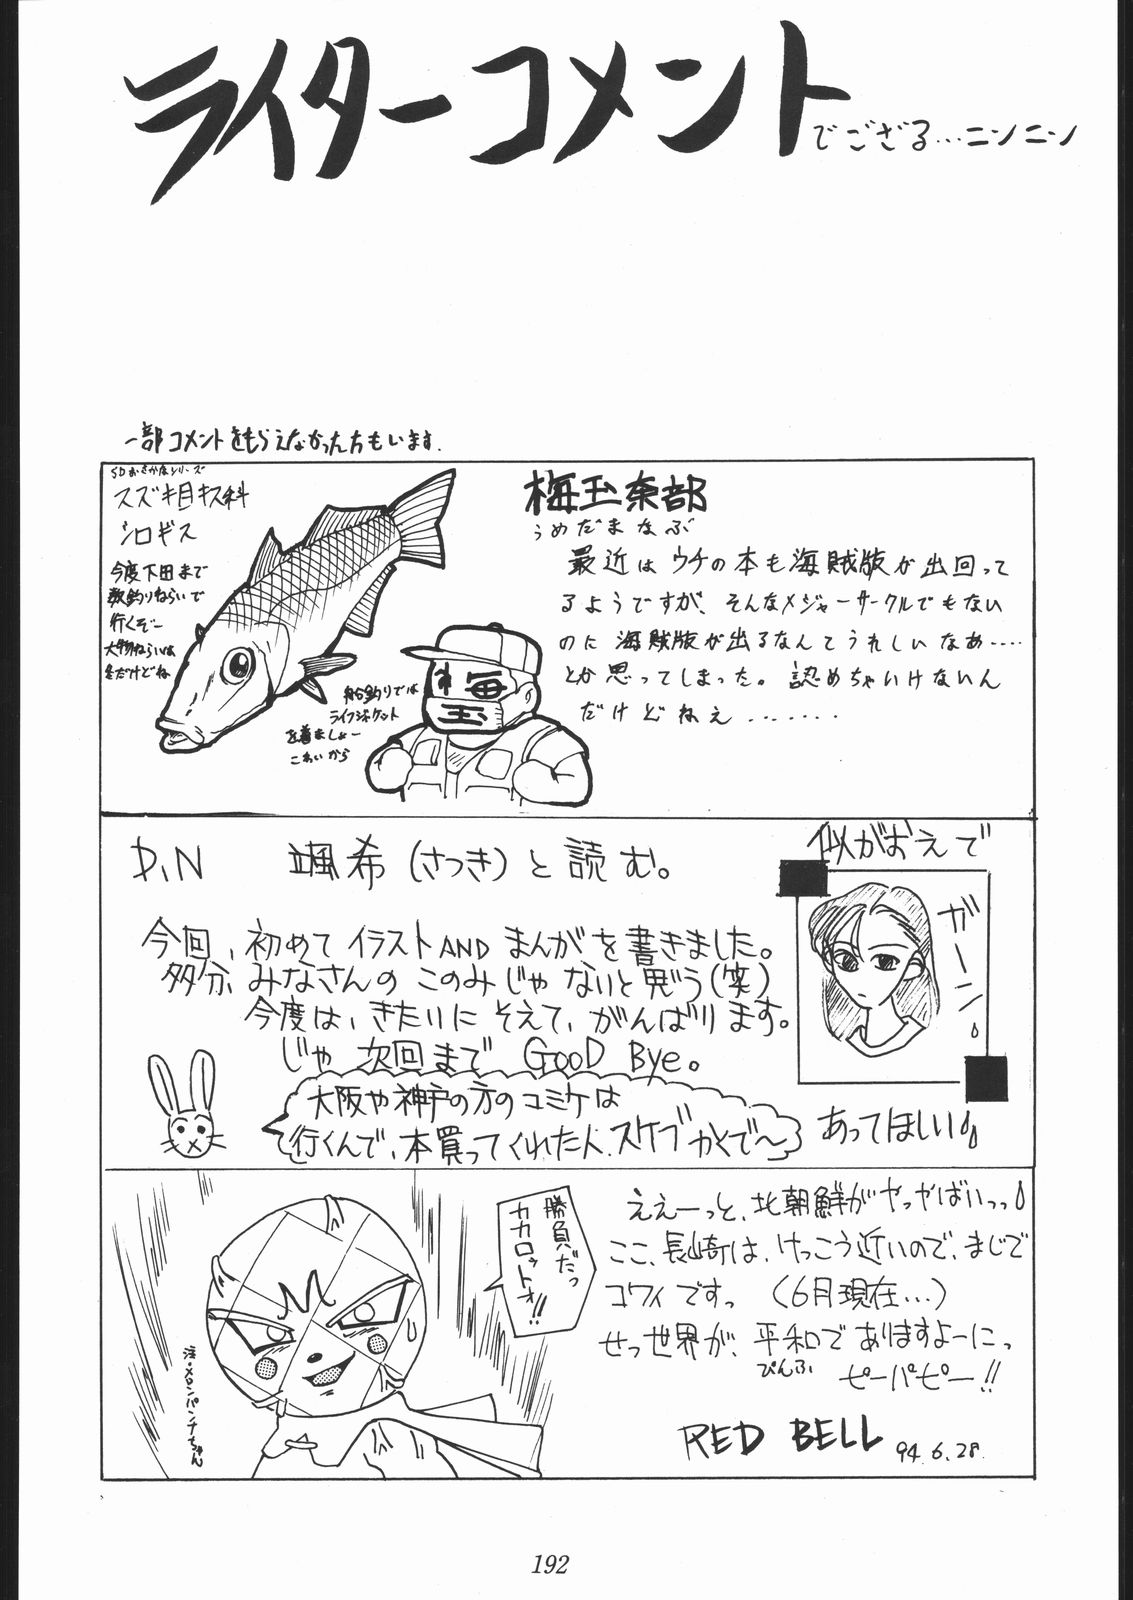 ライターコメント
でござる…ニンニン
一部コメントをもらえなかった方もいます.
SDおさかなシリーズ
スズキ目キス科
シロギス
今度下田まで
数釣りねらいで
行くぞー
大物ねらいは
冬だけどね
船釣りでは
ライフジャケット
を着ましょー
こわいから
梅玉
梅玉奈部
うめだまなぶ
最近はウチの本も海賊版が出回って
るようですが、そんなメジャーサークルでもない
のに海賊版が出るなんてうれしいなあ……
とか思ってしまった。認めちゃいけないん
だけどねえ…….
P.N 颯希(さつき)と読む。
今回、初めてイラストANDまんがを書きました。
多分、みなさんのこのみじゃないと思う(笑)
今度は、きたいにそえて、がんばります。
じゃ次回まで GooD Bye。
大阪や神戸の方のコミケは
行くんで、本買ってくれた人、スケブかくで〜
似がおえで
ガーン
あってほしい
勝負だっ
カカロットォ!!
注・メロンパンナちゃん
ええーっと、北朝鮮がやっやばいっっ
ここ、長崎は、けっこう近いので、まじで
コワイですっ (6月現在…)
せっ世界が、平和でありますよーにっ
ぴんふ
ピーパピー!!
RED BELL 94.6.28.
192